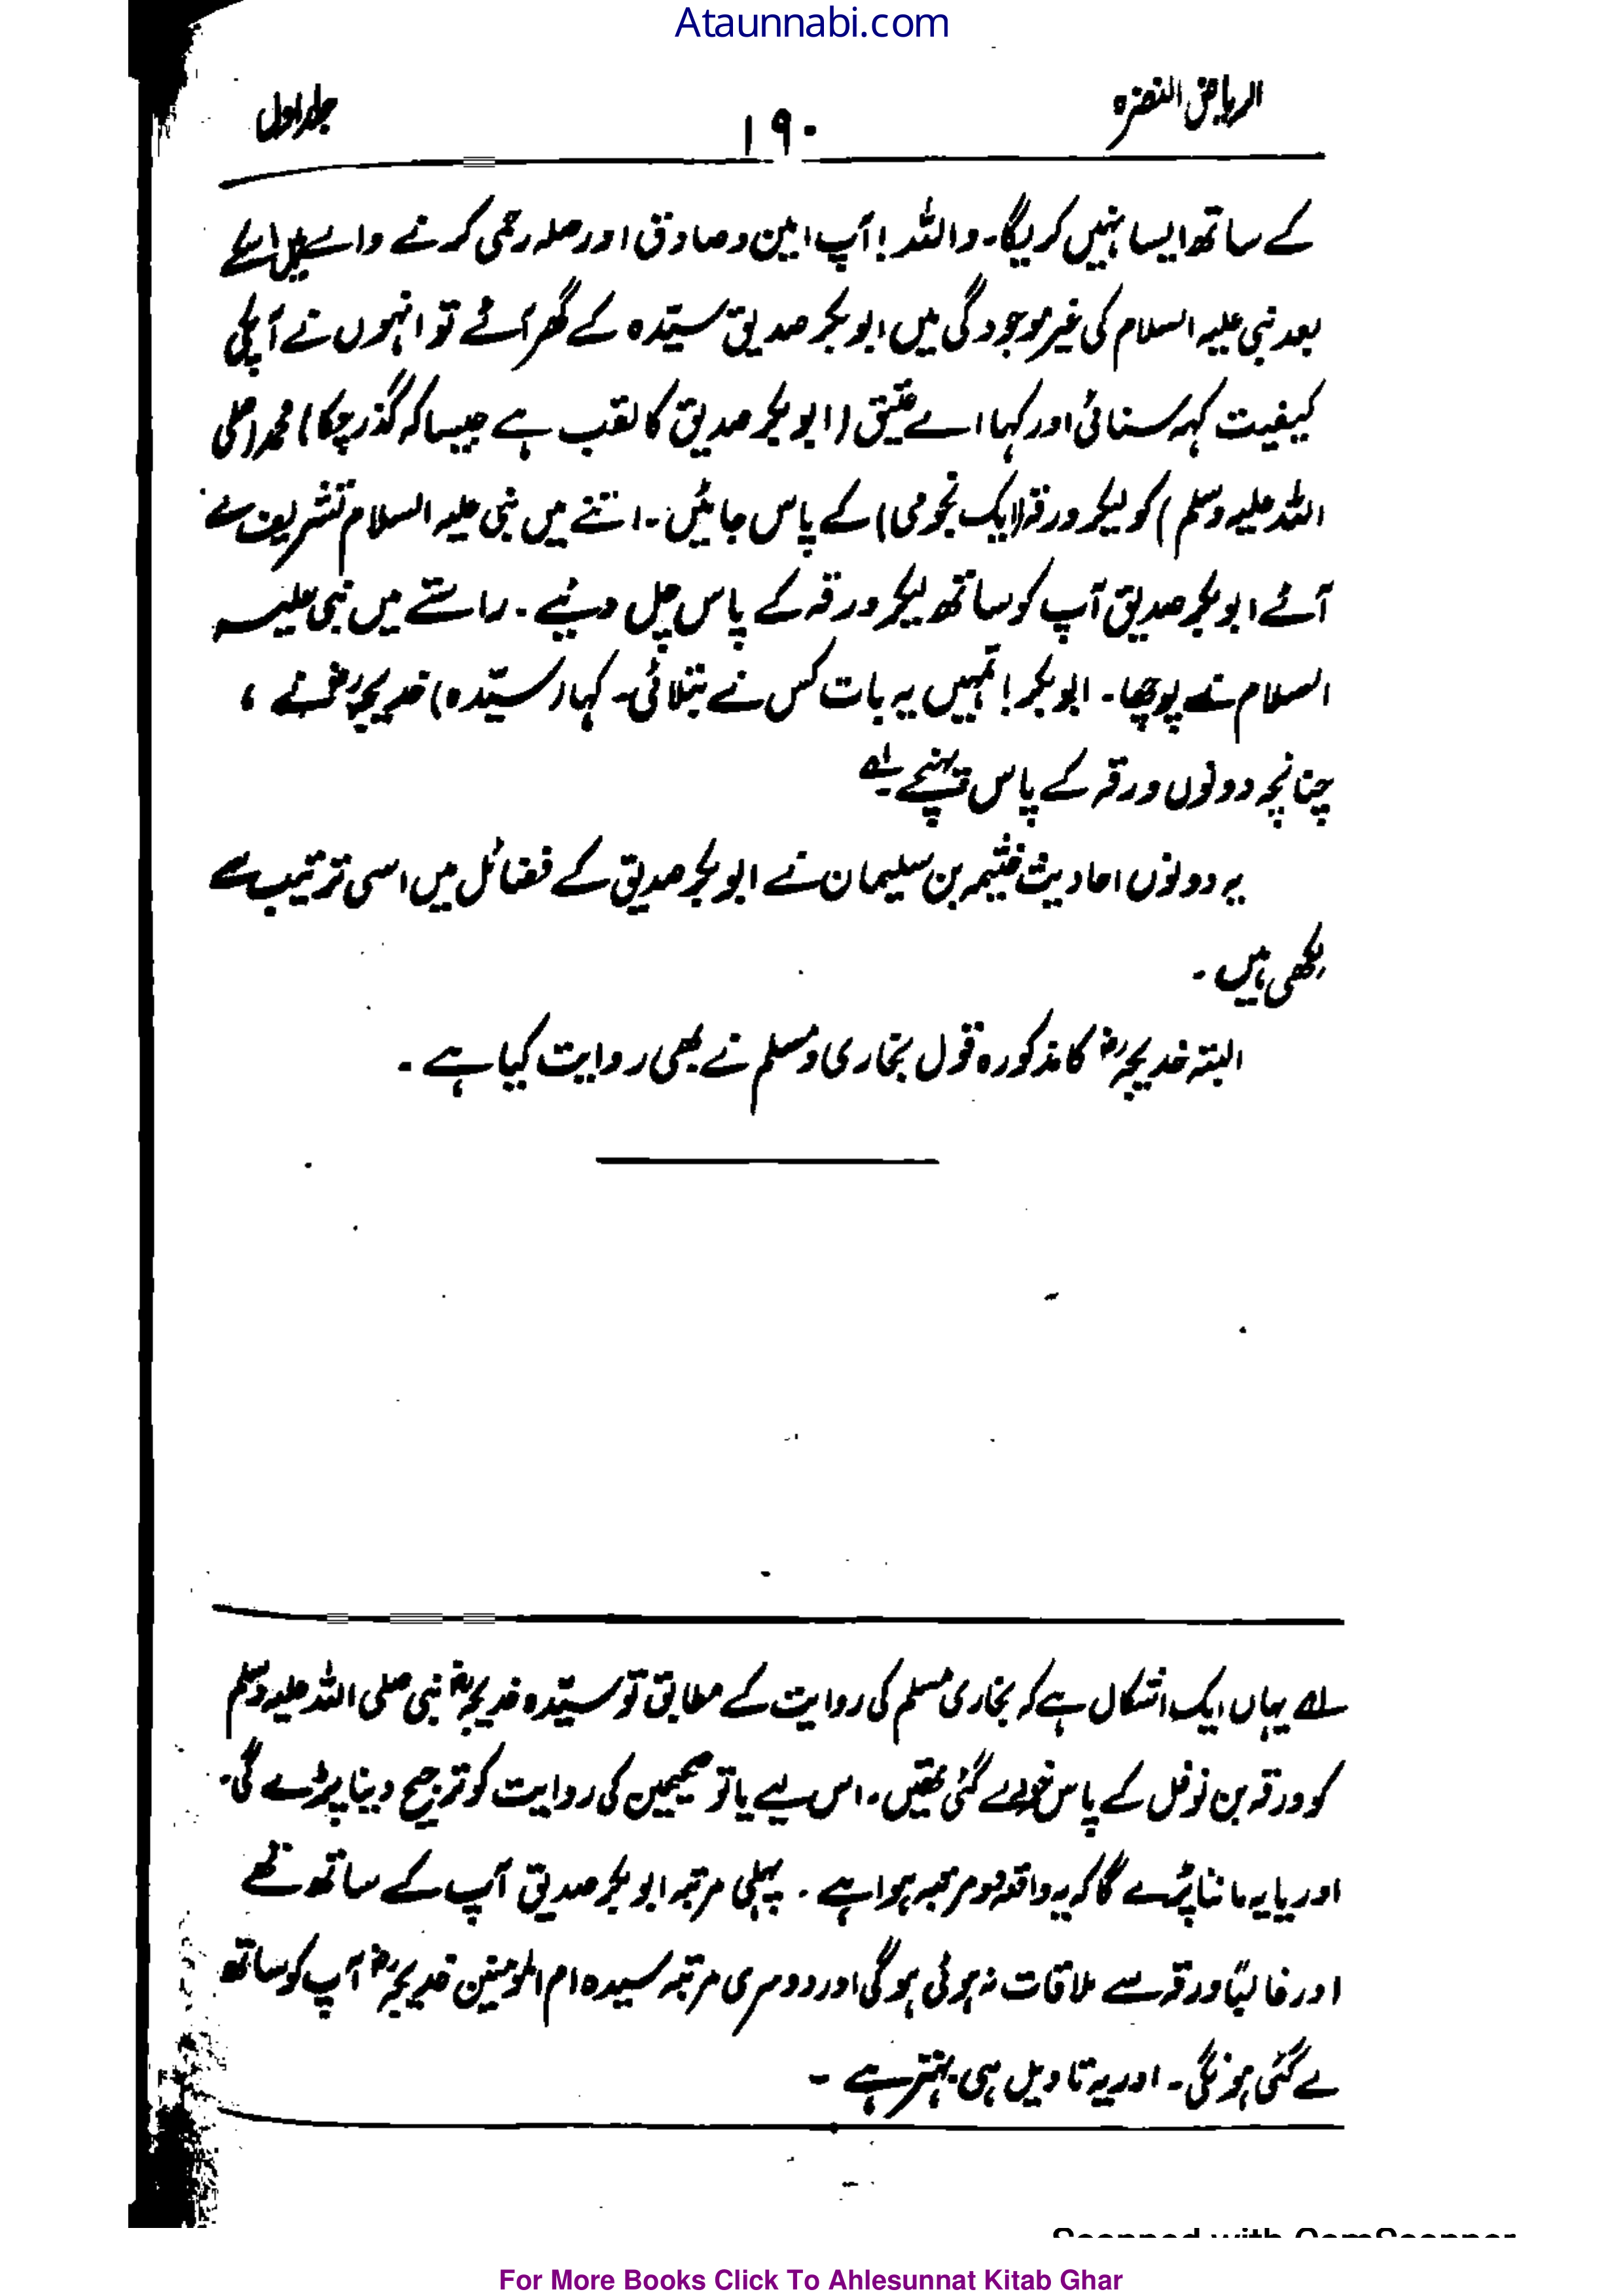 Ataunnabi.com
الریاض النضرہ
۱۹۰
جلد اول
کے ساتھ ایسا نہیں کریگا۔ واللہ! آپ امین و صادق اور صلہ رحمی کرنے والے ہیں اسکے
بعد نبی علیہ السلام کی غیر موجودگی میں ابو بکر صدیق سیّدہ کے گھر آئے تو انہوں نے آپکی
کیفیت کہہ سنائی اور کہا اے عتیق (ابو بکر صدیق کا لقب ہے جیسا کہ گذر چکا) محمد (صلی
اللہ علیہ وسلم) کو لیکر ورقہ (ایک نجومی) کے پاس جائیں۔ اتنے میں نبی علیہ السلام تشریف لے
آئے ابو بکر صدیق آپ کو ساتھ لیکر ورقہ کے پاس چل دیئے۔ راستے میں نبی علیہ
السلام نے پوچھا۔ ابو بکر! تمہیں یہ بات کس نے بتلائی۔ کہا (سیّدہ) خدیجہ رض نے ،
چنانچہ دونوں ورقہ کے پاس پہنچے لے
یہ دونوں احادیث خثیمہ بن سلیمان نے ابو بکر صدیق کے فضائل میں اسی ترتیب سے
لکھی ہیں ۔
البتہ خدیجہ رض کا مذکورہ قول بخاری و مسلم نے بھی روایت کیا ہے ۔
لے یہاں ایک اشکال ہے کہ بخاری مسلم کی روایت کے مطابق تو سیّدہ خدیجہ رض نبی صلی اللہ علیہ وسلم
کو ورقہ بن نوفل کے پاس خود لے گئی تھیں۔ اس لیے یا تو صحیحین کی روایت کو ترجیح دینا پڑے گی۔
اور یا یہ ماننا پڑے گا کہ یہ واقعہ دو مرتبہ ہوا ہے ۔ پہلی مرتبہ ابو بکر صدیق آپ کے ساتھ تھے
اور غالباً ورقہ سے ملاقات نہ ہوئی ہو گی اور دوسری مرتبہ سیدہ ام المومنین خدیجہ رض آپ کو ساتھ
لے گئی ہونگی۔ اور یہ تاویل ہی بہتر ہے ۔
Scanned with CamScanner
For More Books Click To Ahlesunnat Kitab Ghar